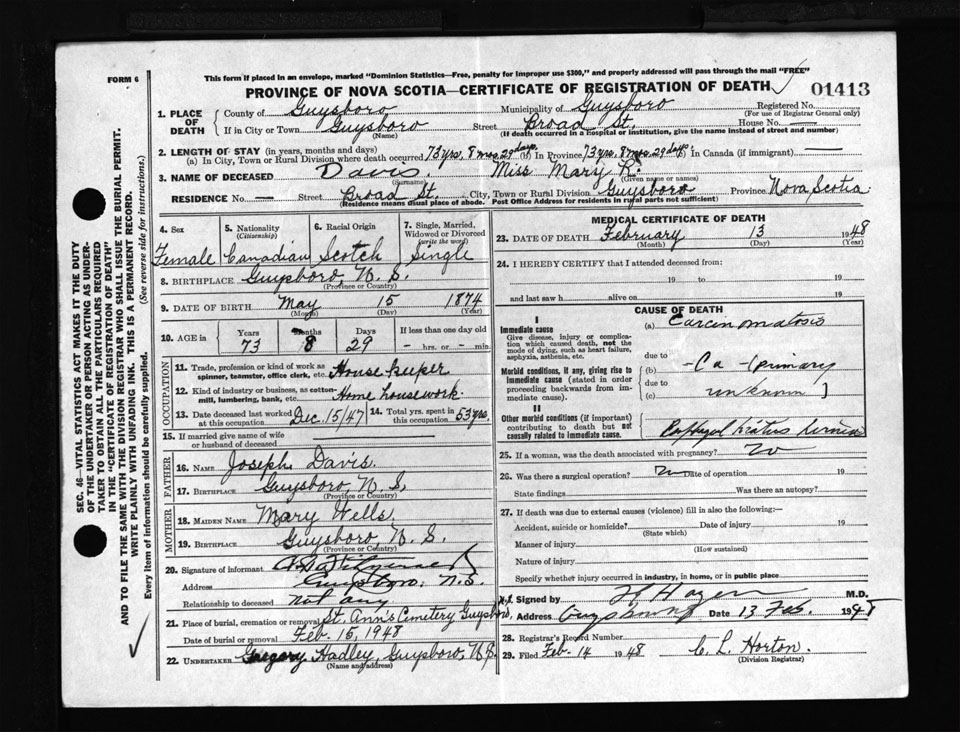 FORM 6
This form if placed in an envelope, marked "Dominion Statistics—Free, penalty for improper use $300," and properly addressed will pass through the mail "FREE"
PROVINCE OF NOVA SCOTIA—CERTIFICATE OF REGISTRATION OF DEATH
01413
1. PLACE OF DEATH
County of Guysboro Municipality of Guysboro Registered No.
(For use of Registrar General only)
If in City or Town Guysboro Street Broad St. House No. —
(Name) (If death occurred in a hospital or institution, give the name instead of street and number)
2. LENGTH OF STAY (in years, months and days)
(a) In City, Town or Rural Division where death occurred 73 yrs. 8 mos. 29 days. In Province 73 yrs. 8 mos. 29 days In Canada (if immigrant) —
3. NAME OF DECEASED Davis. Miss Mary R.
(Surname) (Given name or names)
RESIDENCE No. — Street Broad St. City, Town or Rural Division Guysboro Province Nova Scotia
(Residence means usual place of abode. Post Office Address for residents in rural parts not sufficient)
4. Sex
Female
5. Nationality
(Citizenship)
Canadian
6. Racial Origin
Scotch
7. Single, Married, Widowed or Divorced
(write the word)
Single
8. BIRTHPLACE Guysboro N. S.
(Province or Country)
9. DATE OF BIRTH May 15 1874
(Month) (Day) (Year)
10. AGE in Years Months Days If less than one day old
73 8 29 - hrs. or - min.
OCCUPATION
11. Trade, profession or kind of work as spinner, teamster, office clerk, etc. House keeper
12. Kind of industry or business, as cotton-mill, lumbering, bank, etc. Home housework.
13. Date deceased last worked at this occupation Dec. 15/47
14. Total yrs. spent in this occupation 53 yrs.
15. If married give name of wife or husband of deceased
FATHER
16. NAME Joseph Davis.
17. BIRTHPLACE Guysboro N. S.
(Province or Country)
MOTHER
18. MAIDEN NAME Mary Wells
19. BIRTHPLACE Guysboro N. S.
(Province or Country)
20. Signature of informant
Address Guysboro, N.S.
Relationship to deceased not any
21. Place of burial, cremation or removal St. Ann's Cemetery Guysboro,
Date of burial or removal Feb. 15, 1948
22. UNDERTAKER Gregory Hadley, Guysboro, N.S.
(Name and address)
MEDICAL CERTIFICATE OF DEATH
23. DATE OF DEATH February 13 1948
(Month) (Day) (Year)
24. I HEREBY CERTIFY that I attended deceased from:
19 to 19
and last saw h alive on 19
CAUSE OF DEATH
I
Immediate cause
Give disease, injury or complication which caused death, not the mode of dying, such as heart failure, asphyxia, asthenia, etc.
(a) Carcinomatosis
due to
Morbid conditions, if any, giving rise to immediate cause (stated in order proceeding backwards from immediate cause).
(b) - Ca - (primary
due to
(c) unknown)
II
Other morbid conditions (if important) contributing to death but not causally related to immediate cause.
25. If a woman, was the death associated with pregnancy? no
26. Was there a surgical operation? no Date of operation 19
State findings Was there an autopsy?
27. If death was due to external causes (violence) fill in also the following:—
Accident, suicide or homicide? Date of injury 19
(State which)
Manner of injury
(How sustained)
Nature of injury
Specify whether injury occurred in industry, in home, or in public place
Signed by M.D.
Address Guysboro Date 13 Feb. 1948
28. Registrar's Record Number
29. Filed Feb. 14 1948 C. L. Horton.
(Division Registrar)
SEC. 46—VITAL STATISTICS ACT MAKES IT THE DUTY
OF THE UNDERTAKER OR PERSON ACTING AS UNDER-
TAKER TO OBTAIN ALL THE PARTICULARS REQUIRED
IN THE "CERTIFICATE OF REGISTRATION OF DEATH"
AND TO FILE THE SAME WITH THE DIVISION REGISTRAR WHO SHALL ISSUE THE BURIAL PERMIT.
WRITE PLAINLY WITH UNFADING INK. THIS IS A PERMANENT RECORD.
Every item of information should be carefully supplied. (See reverse side for instructions.)